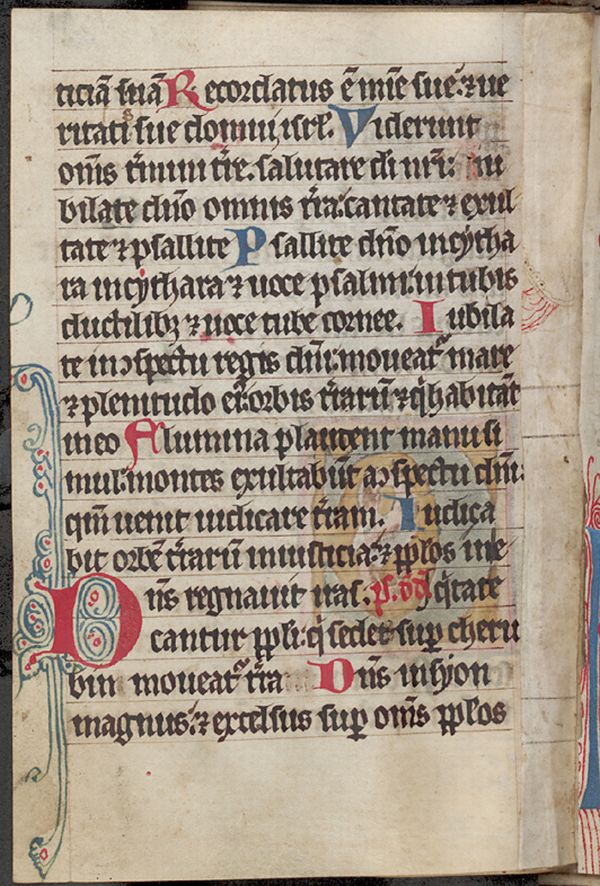 ticiā suā Recordatus ē mīe sue: ⁊ ue
ritatis sue domui isrł. Viderunt
om̄s t̄mini t̄re. salutare di nr̄i: iu
bilate dn̄o omnis t̄ra: cantate ⁊ exul
tate ⁊ psallite Psallite dn̄o in cytha
ra in cythara ⁊ uoce psalmi: in tubis
ductilibꝫ ⁊ uoce tube cornee. Iubila
te in ↄspectu regis dn̄i: moueat᷑ mare
⁊ plenitudo ei᷑: orbis t̄rarū ⁊ q̄ habitāt
in eo Flumina plaudent manu si
mul: montes exultabūt a ↄspectu dn̄i:
qm̄ uenit iudicare t̄ram. Iudica
bit orbē t̄rarū in iusticia: ⁊ ꝑꝑlos in e
Dn̄s regnauit iras. ps. dd̄ q̄tate
cantur ꝑꝑli: q̄ sedet suꝑ cheru
bin moueat᷑ t̄ra Dn̄s in syon
magnus: ⁊ excelsus suꝑ om̄s ꝑꝑlos